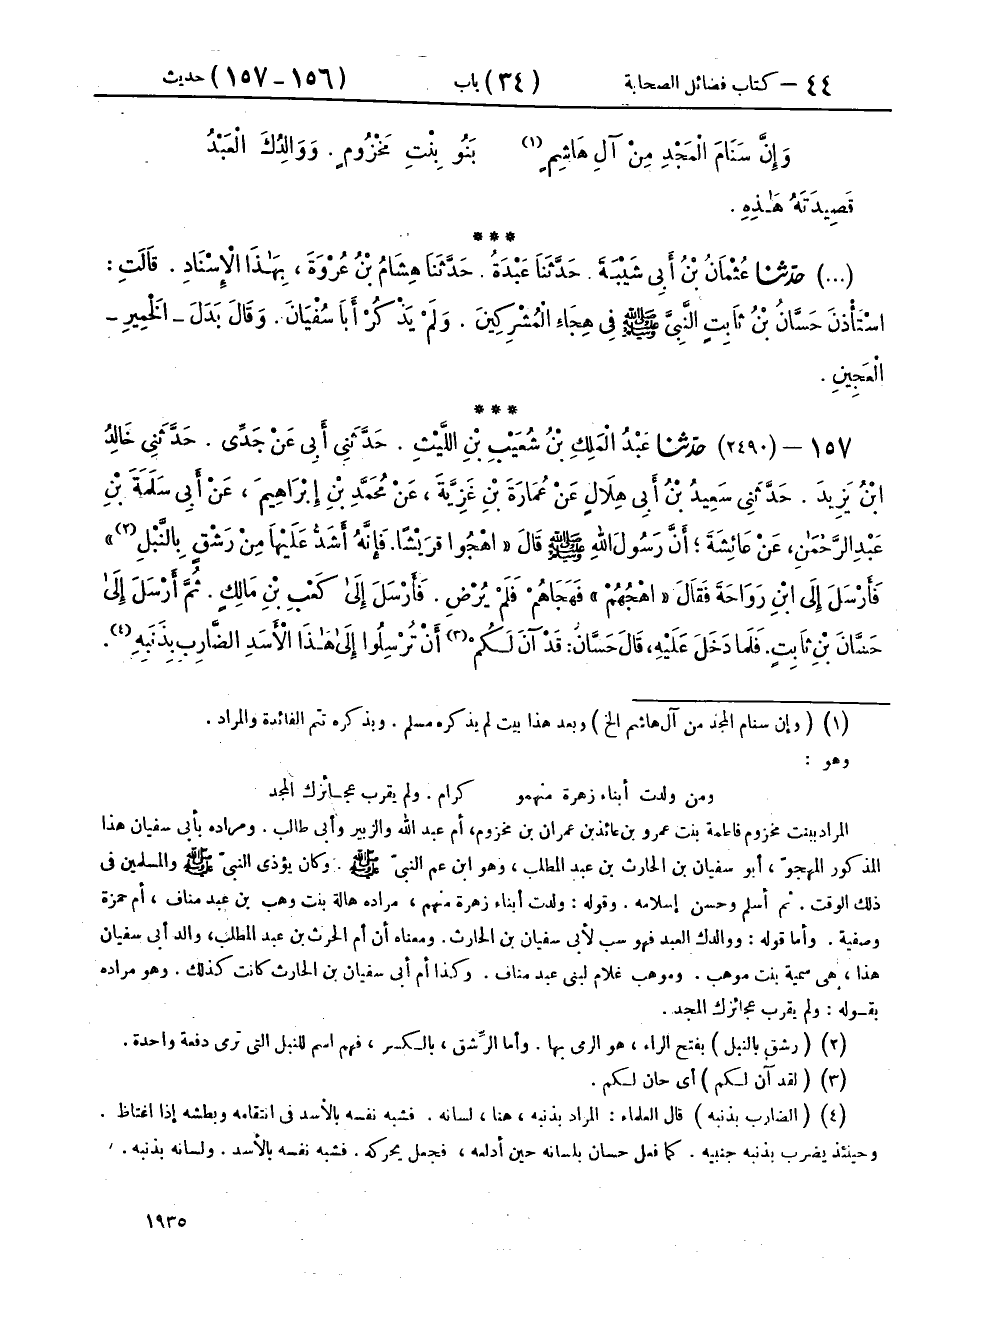 ٤٤ – كتاب فضائل الصحابة (٣٤) باب (١٥٦ – ١٥٧) حديث
وَإِنَّ سَنَامَ الْمَجْدِ مِنْ آلِ هَاشِمٍ(١) بَنُو بِنْتِ مَخْزُومٍ. وَوَالِدُكَ الْعَبْدُ
قَصِيدَتَهُ هَٰذِهِ.
***
(...) حَدَّثَنَا عُثْمَانُ بْنُ أَبِي شَيْبَةَ. حَدَّثَنَا عَبْدَةُ. حَدَّثَنَا هِشَامُ بْنُ عُرْوَةَ، بِهَٰذَا الْإِسْنَادِ. قَالَتِ:
اسْتَأْذَنَ حَسَّانُ بْنُ ثَابِتٍ النَّبِيَّ ﷺ فِي هِجَاءِ الْمُشْرِكِينَ. وَلَمْ يَذْكُرْ أَبَا سُفْيَانَ. وَقَالَ بَدَلَ – الْخَمِيرِ –
الْعَجِينِ.
***
١٥٧ – (٢٤٩٠) حَدَّثَنَا عَبْدُ الْمَلِكِ بْنُ شُعَيْبِ بْنِ اللَّيْثِ. حَدَّثَنِي أَبِي عَنْ جَدِّي. حَدَّثَنِي خَالِدُ
ابْنُ يَزِيدَ. حَدَّثَنِي سَعِيدُ بْنُ أَبِي هِلَالٍ عَنْ عُمَارَةَ بْنِ غَزِيَّةَ، عَنْ مُحَمَّدِ بْنِ إِبْرَاهِيمَ، عَنْ أَبِي سَلَمَةَ بْنِ
عَبْدِ الرَّحْمَٰنِ، عَنْ عَائِشَةَ؛ أَنَّ رَسُولَ اللهِ ﷺ قَالَ « اهْجُوا قُرَيْشًا. فَإِنَّهُ أَشَدُّ عَلَيْهَا مِنْ رَشْقٍ بِالنَّبْلِ(٢) »
فَأَرْسَلَ إِلَى ابْنِ رَوَاحَةَ فَقَالَ « اهْجُهُمْ » فَهَجَاهُمْ فَلَمْ يُرْضِ. فَأَرْسَلَ إِلَىٰ كَعْبِ بْنِ مَالِكٍ. ثُمَّ أَرْسَلَ إِلَىٰ
حَسَّانَ بْنِ ثَابِتٍ. فَلَمَّا دَخَلَ عَلَيْهِ، قَالَ حَسَّانُ: قَدْ آنَ لَكُمْ(٣) أَنْ تُرْسِلُوا إِلَىٰ هَٰذَا الْأَسَدِ الضَّارِبِ بِذَنَبِهِ(٤).
(١) ( وإن سنام المجد من آل هاشم الخ ) وبعد هذا بيت لم يذكره مسلم. وبذكره تتم الفائدة والمراد.
وهو:
ومن ولدت أبناء زهرة منهمو كرام. ولم يقرب عجائزك المجد
المراد ببنت مخزوم فاطمة بنت عمرو بن عائذ بن عمران بن مخزوم، أم عبد الله والزبير وأبي طالب. ومراده بأبي سفيان هذا
المذكور المهجوّ، أبو سفيان بن الحارث بن عبد المطلب، وهو ابن عم النبيّ ﷺ. وكان يؤذي النبيّ ﷺ والمسلمين في
ذلك الوقت. ثم أسلم وحسن إسلامه. وقوله: ولدت أبناء زهرة منهم، مراده هالة بنت وهب بن عبد مناف، أم حمزة
وصفية. وأما قوله: ووالدك العبد فهو سب لأبي سفيان بن الحارث. ومعناه أن أم الحرث بن عبد المطلب، والد أبي سفيان
هذا، هي سمية بنت موهب. وموهب غلام لبني عبد مناف. وكذا أم أبي سفيان بن الحارث كانت كذلك. وهو مراده
بقوله: ولم يقرب عجائزك المجد.
(٢) ( رشق بالنبل ) بفتح الراء، هو الرمي بها. وأما الرِّشق، بالكسر، فهم اسم للنبل التي ترمى دفعة واحدة.
(٣) ( لقد آن لكم ) أي حان لكم.
(٤) ( الضارب بذنبه ) قال العلماء: المراد بذنبه، هنا، لسانه. فشبه نفسه بالأسد في انتقامه وبطشه إذا اغتاظ.
وحينئذ يضرب بذنبه جنبيه. كما فعل حسان بلسانه حين أدلعه، فجعل يحركه. فشبه نفسه بالأسد. ولسانه بذنبه.
١٩٣٥